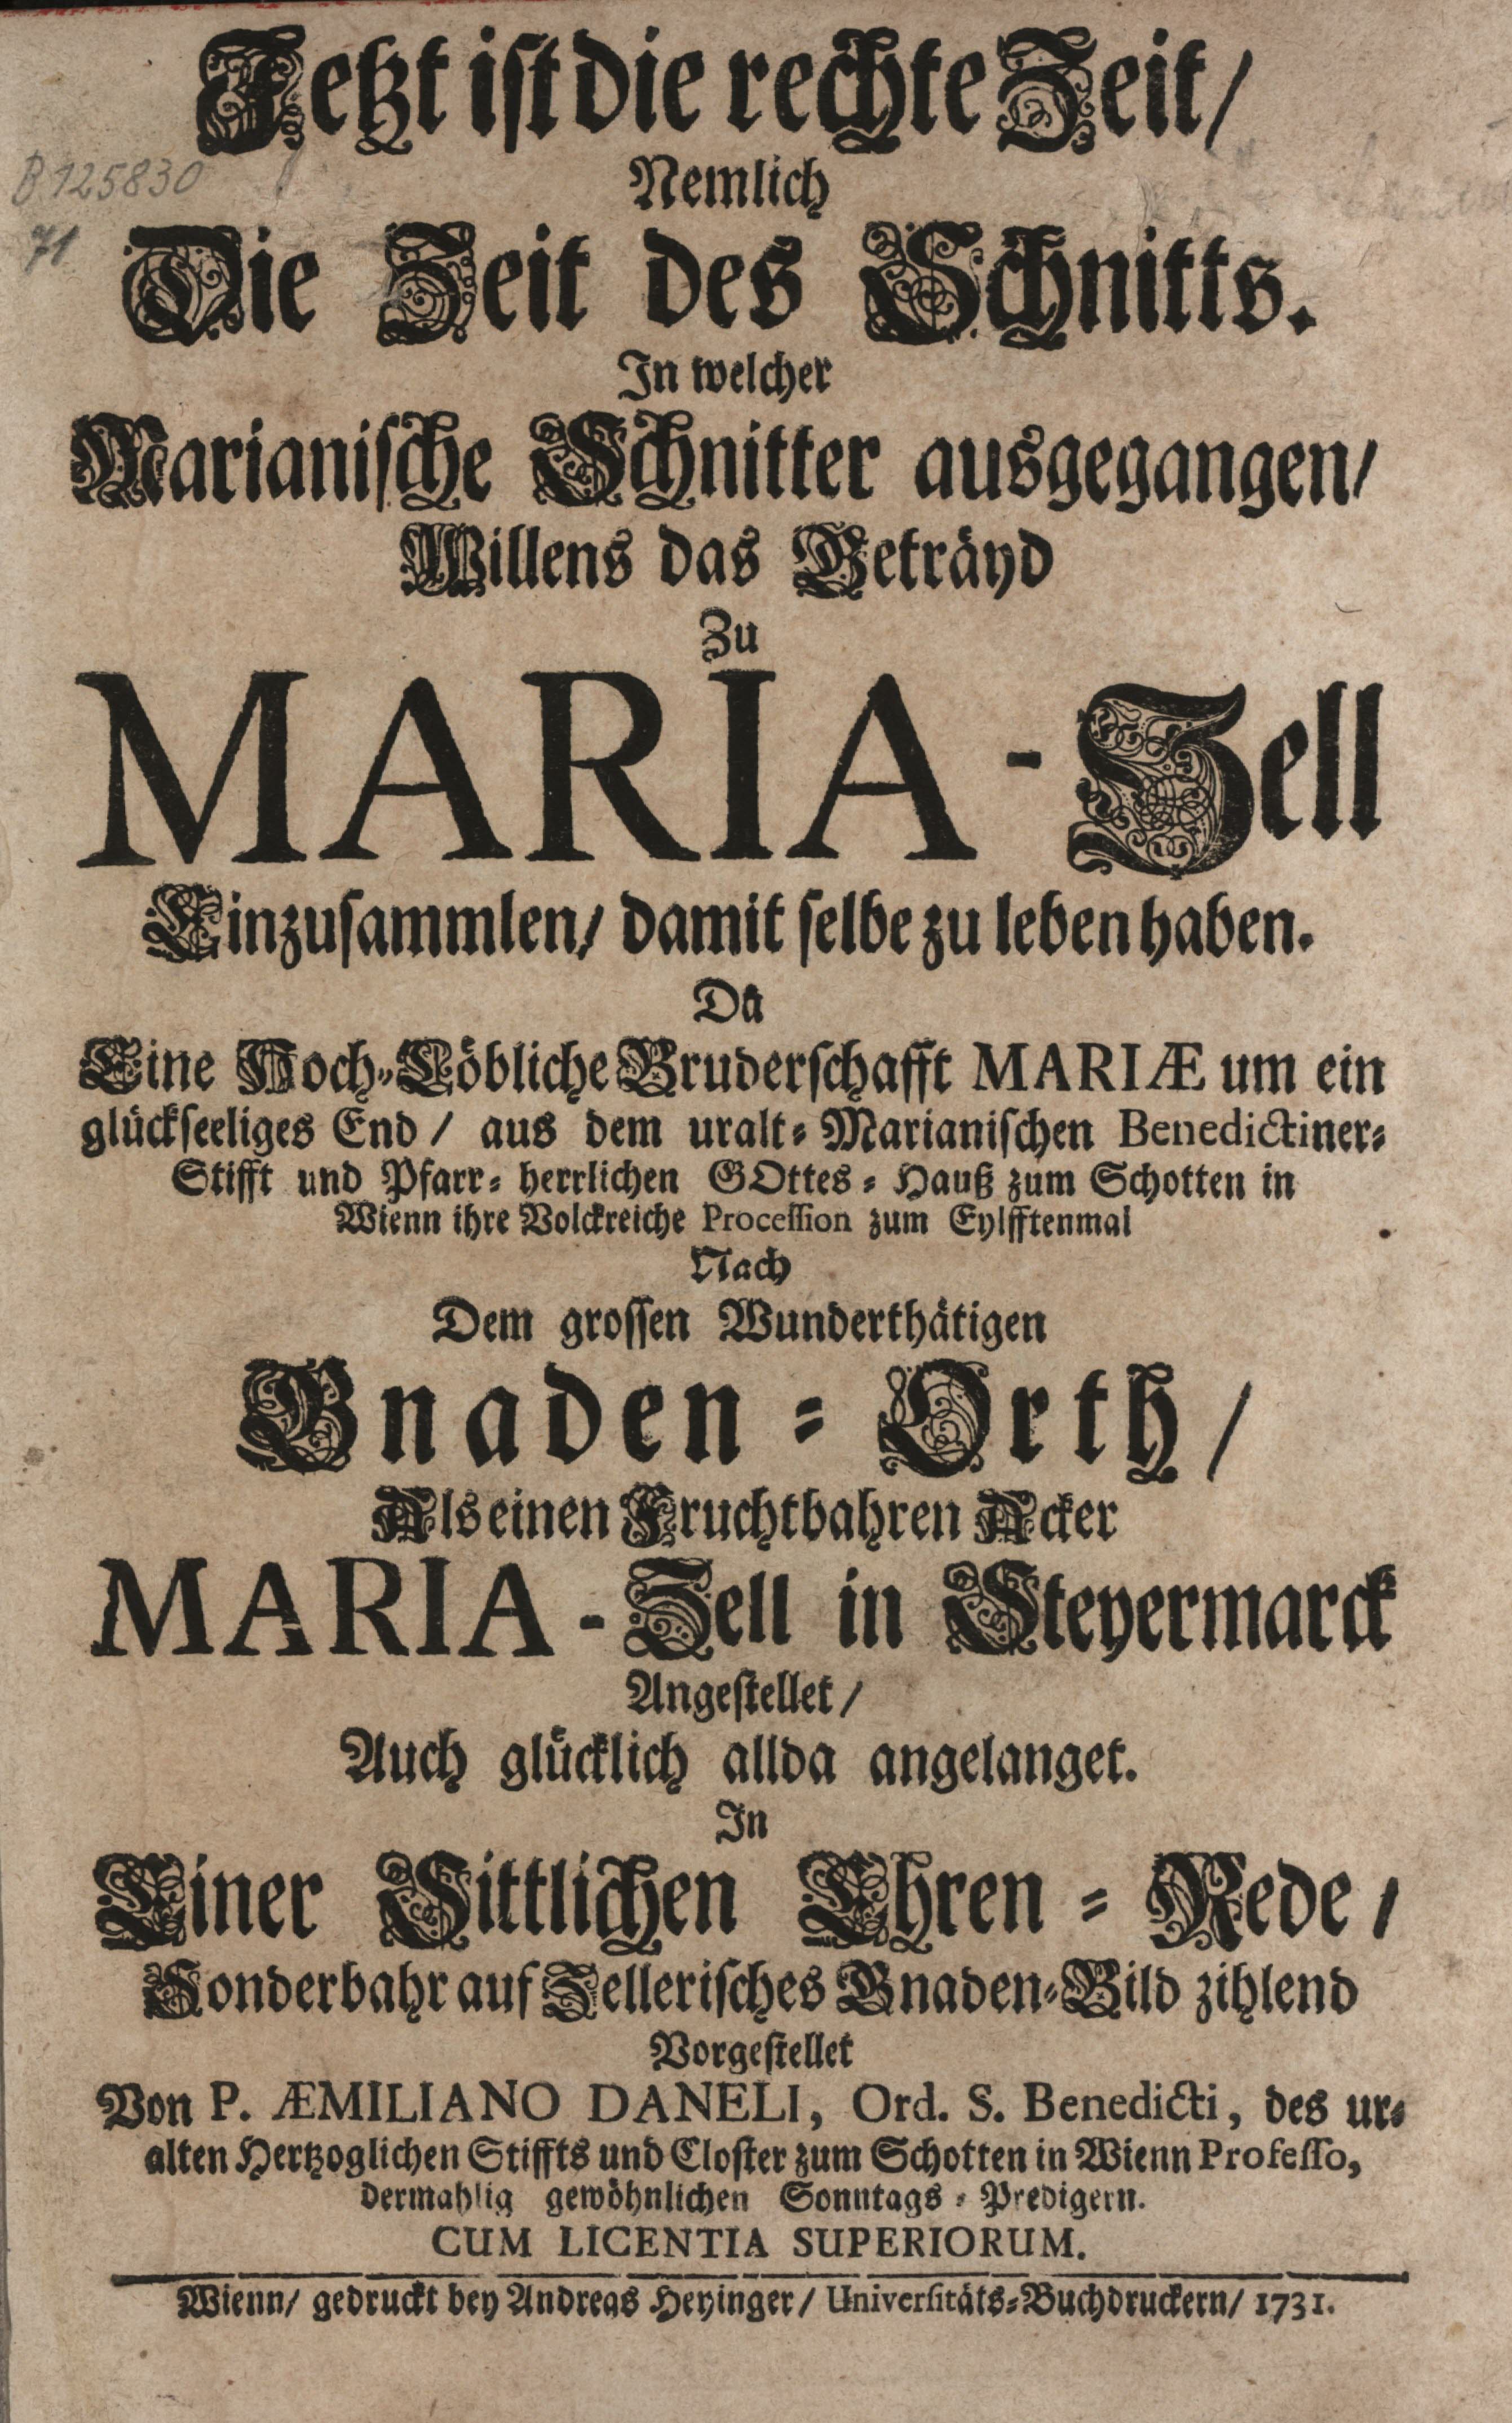 Jetzt ist die rechte Zeit/
Nemlich
B.125830
71
Die Zeit des Schnitts.
In welcher
Marianische Schnitter ausgegangen/
Willens das Geträyd
Zu
MARIA-Zell
Einzusammlen/ damit selbe zu leben haben.
Da
Eine Hoch-Löbliche Bruderschafft MARIÆ um ein
glückseeliges End/ aus dem uralt-Marianischen Benedictiner-
Stifft und Pfarr-herrlichen GOttes-Hauß zum Schotten in
Wienn ihre Volckreiche Procession zum Eylfftenmal
Nach
Dem grossen Wunderthätigen
Gnaden-Orth/
Als einen Fruchtbahren Acker
MARIA-Zell in Steyermarck
Angestellet/
Auch glücklich allda angelanget.
In
Einer Sittlichen Ehren-Rede/
Sonderbahr auf Zellerisches Gnaden-Bild zihlend
Vorgestellet
Von P. ÆMILIANO DANELI, Ord. S. Benedicti, des ur-
alten Hertzoglichen Stiffts und Closter zum Schotten in Wienn Professo,
dermahlig gewöhnlichen Sonntags-Predigern.
CUM LICENTIA SUPERIORUM.
Wienn/ gedruckt bey Andreas Heyinger/ Universitäts-Buchdruckern/ 1731.